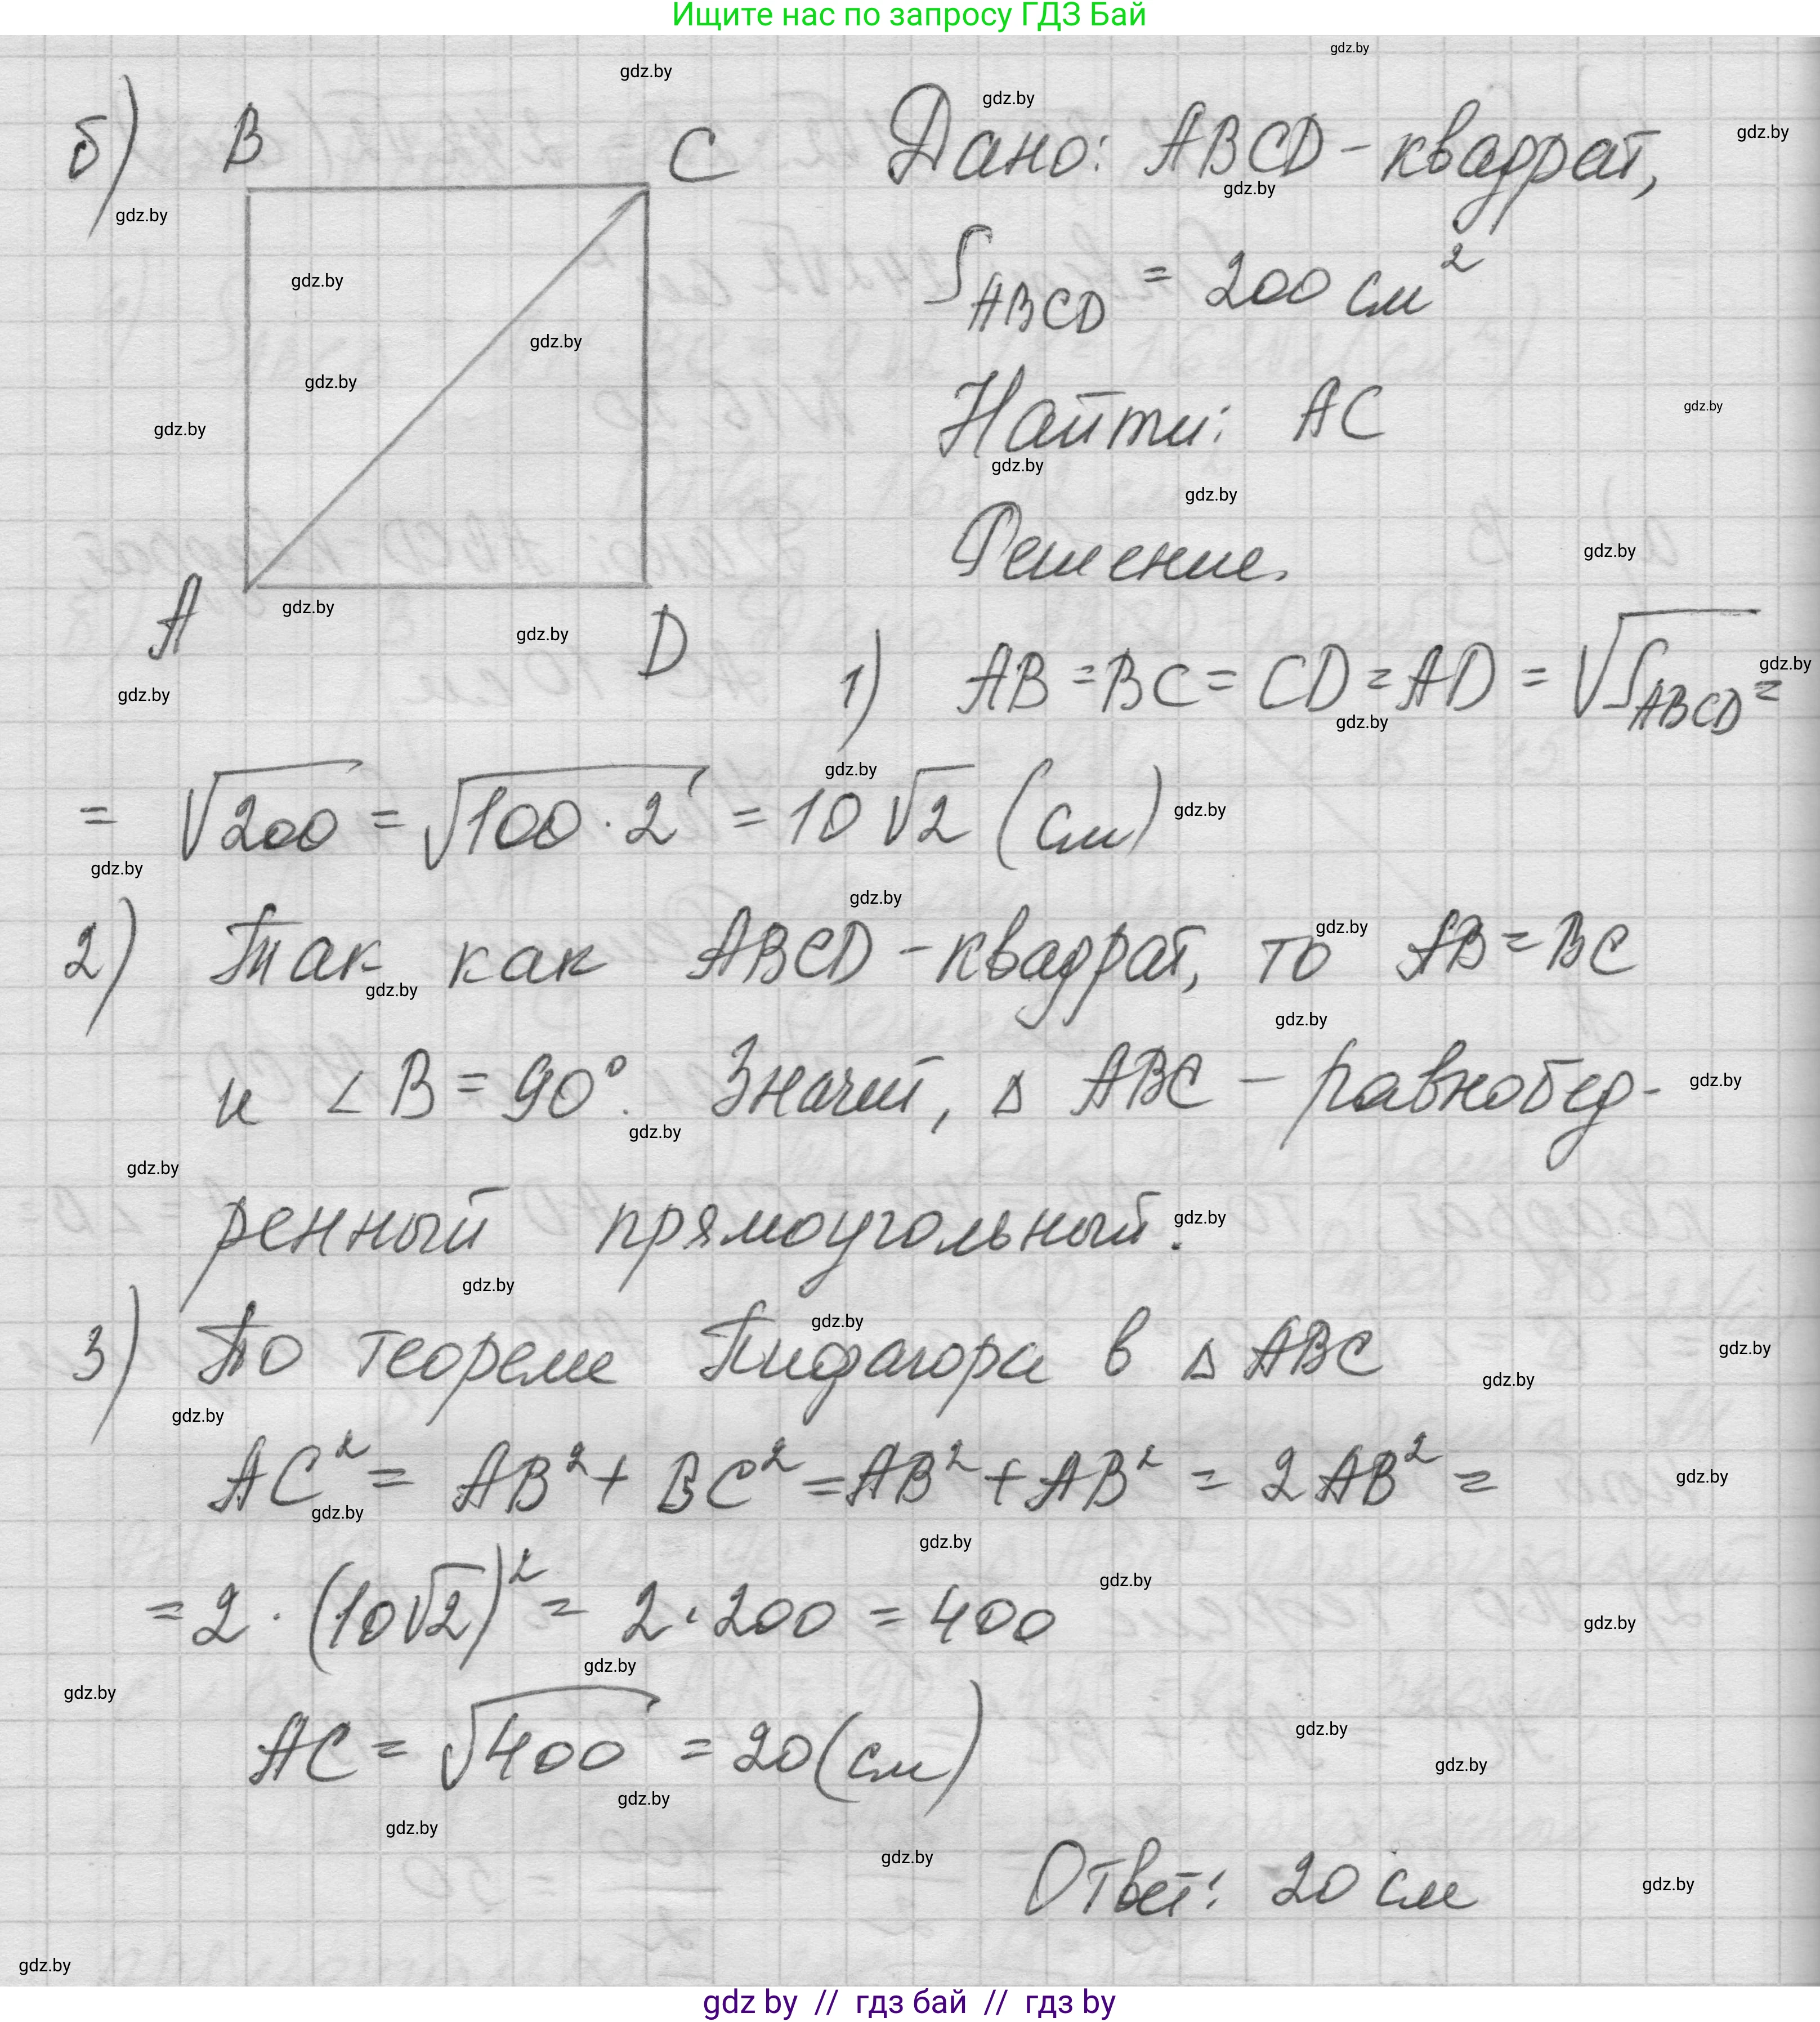 Ищите нас по запросу ГДЗ Бай
б) B C
A D
Дано: ABCD - квадрат,
S_ABCD = 200 см²
Найти: AC
Решение.
1) AB = BC = CD = AD = √S_ABCD =
= √200 = √100 · 2 = 10√2 (см)
2) Так как ABCD - квадрат, то AB = BC
и ∠B = 90°. Значит, △ABC - равнобед-
ренный прямоугольный.
3) По теореме Пифагора в △ABC
AC² = AB² + BC² = AB² + AB² = 2AB² =
= 2 · (10√2)² = 2 · 200 = 400
AC = √400 = 20 (см)
Ответ: 20 см
gdz by // гдз бай // гдз by